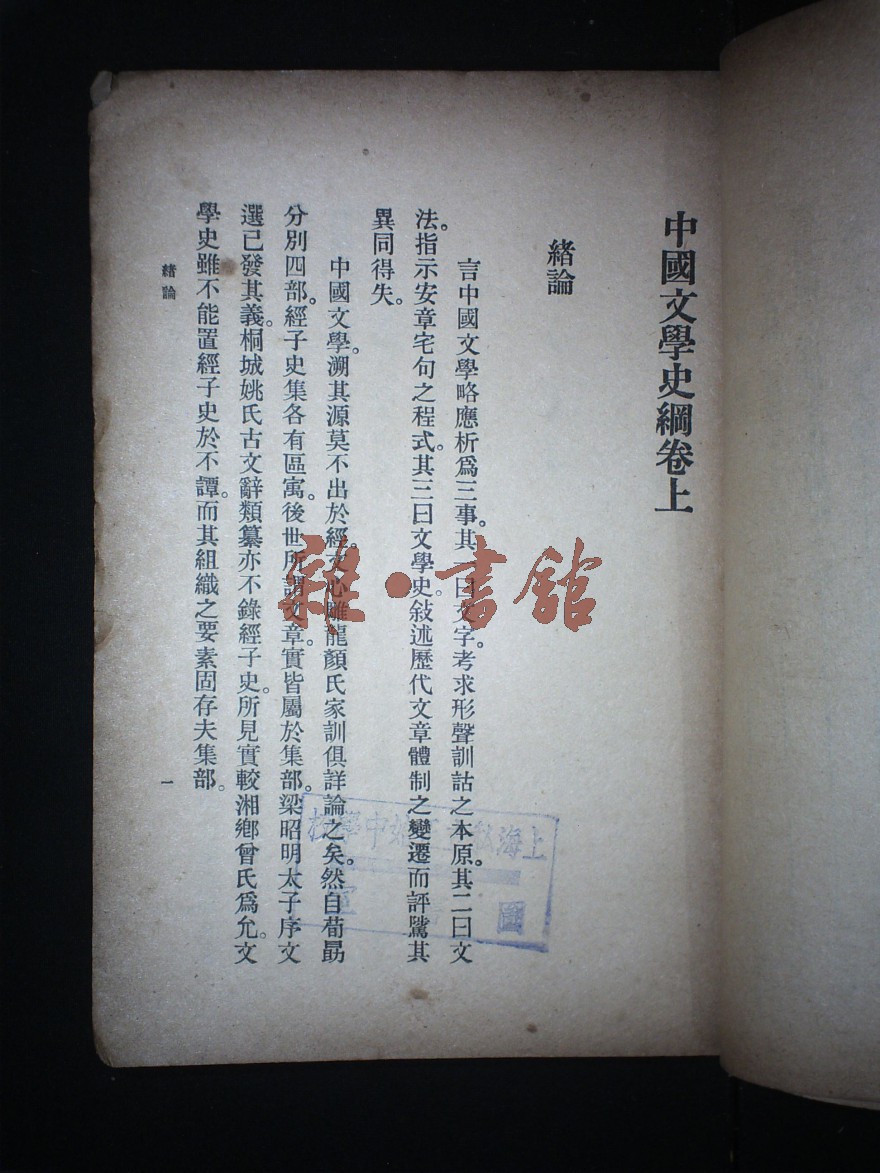 中國文學史綱卷上
緒論
言中國文學略應析爲三事。其一曰文字。考求形聲訓詁之本原。其二曰文
法。指示安章宅句之程式。其三曰文學史。敍述歷代文章體制之變遷而評騭其
異同得失。
中國文學。溯其源莫不出於經。文心雕龍顏氏家訓俱詳論之矣。然自荀勗
分別四部。經子史集各有區寓。後世所謂文章。實皆屬於集部。梁昭明太子序文
選已發其義。桐城姚氏古文辭類纂亦不錄經子史。所見實較湘鄕曾氏爲允。文
學史雖不能置經子史於不譚。而其組織之要素固存夫集部。
緒論
一
雜·書館
上海私
中學校
圖